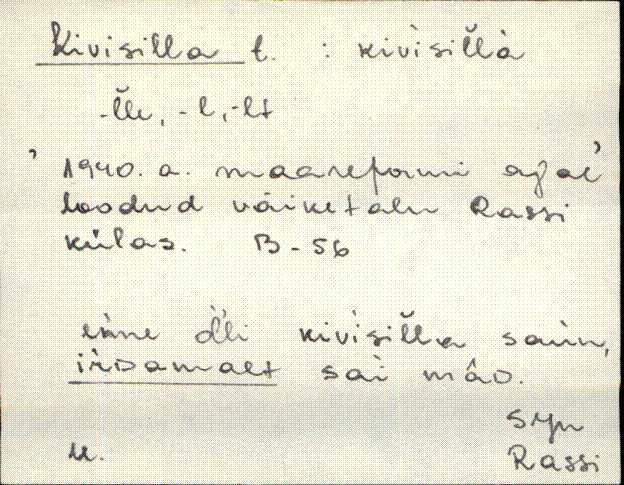 Kivisilla t. : kivisil̆l̆à
-l̆l̆e, -l, -lt
' 1940. a. maareformi ajal'
loodud väiketalu Rassi
külas. B-56
enne ol̆li kivisil̆l̆a saun,
irdamalt sai mâo.
Rassi